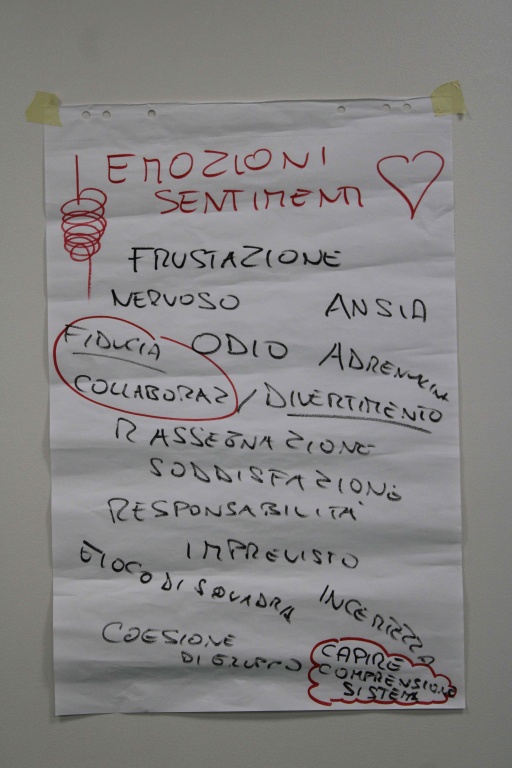 EMOZIONI
SENTIMENTI
FRUSTAZIONE
NERVOSO ANSIA
FIDUCIA ODIO ADRENALINA
COLLABORAZ / DIVERTIMENTO
RASSEGNAZIONE
SODDISFAZIONE
RESPONSABILITÀ
IMPREVISTO
GIOCO DI SQUADRA INCERTEZZA
COESIONE
DI GRUPPO
CAPIRE
COMPRENSIONE
SISTEMA